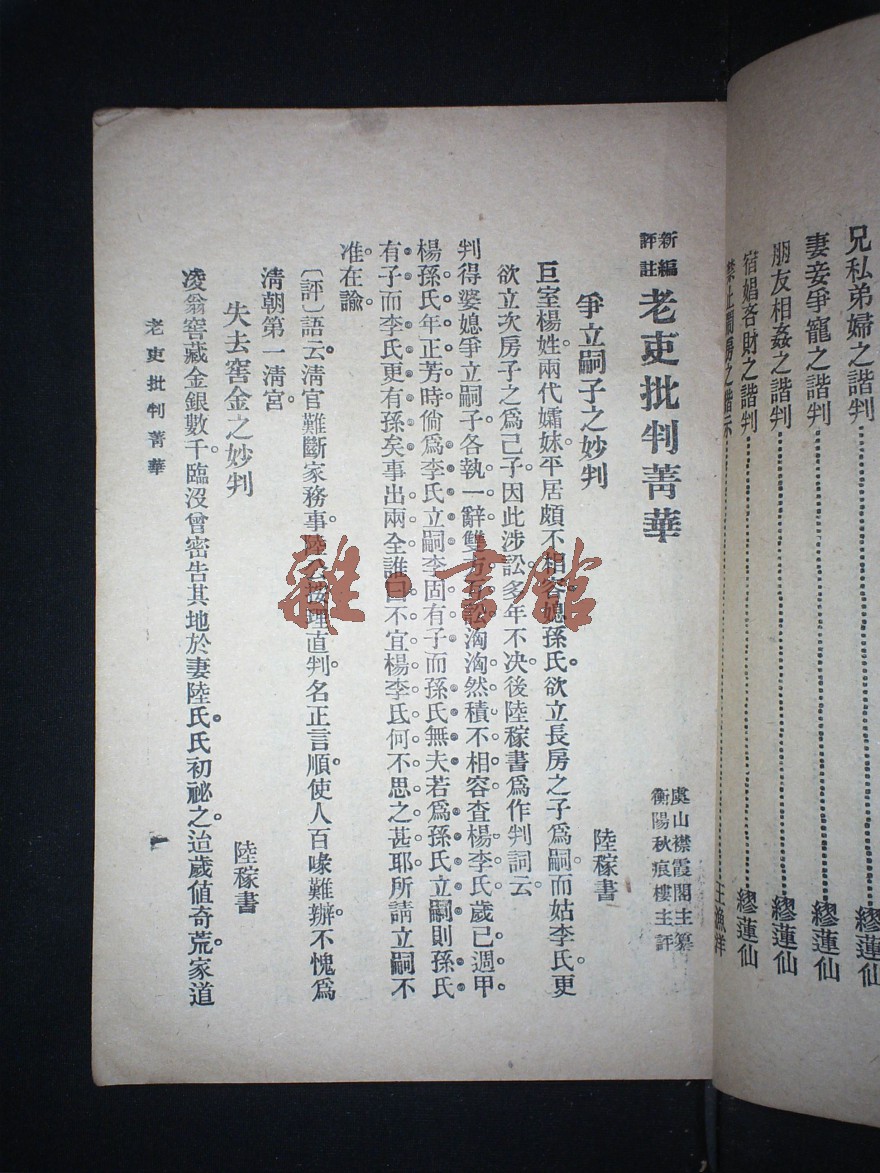 兄私弟婦之諧判…………繆蓮仙
妻妾爭寵之諧判…………繆蓮仙
朋友相姦之諧判…………繆蓮仙
宿娼吝財之諧判…………繆蓮仙
禁止鬧房之諧示…………王漁洋
新編
評註
老吏批判菁華
虞山襟霞閣主纂
衡陽秋痕樓主評
爭立嗣子之妙判
陸稼書
巨室楊姓。兩代孀妹。平居頗不相容。媳孫氏。欲立長房之子爲嗣。而姑李氏。更
欲立次房子之爲己子。因此涉訟。多年不决。後陸稼書爲作判詞云
判得婆媳爭立嗣子。各執一辭。雙方互訟。洶洶然積不相容。查楊李氏歲已週甲。
楊孫氏年正芳時。倘爲李氏立嗣。李固有子。而孫氏無夫。若爲孫氏立嗣。則孫氏
有子。而李氏更有孫矣。事出兩全。誰曰不宜。楊李氏何不思之甚耶。所請立嗣不
准。在諭。
〔評〕語云。清官難斷家務事。陸公按理直判。名正言順。使人百喙難辦。不愧爲
清朝第一清宮。
失去窖金之妙判
陸稼書
凌翁窖藏金銀數千。臨沒曾密告其地於妻陸氏。氏初祕之。迨歲值奇荒。家道
老吏批判菁華
一
雜·書館